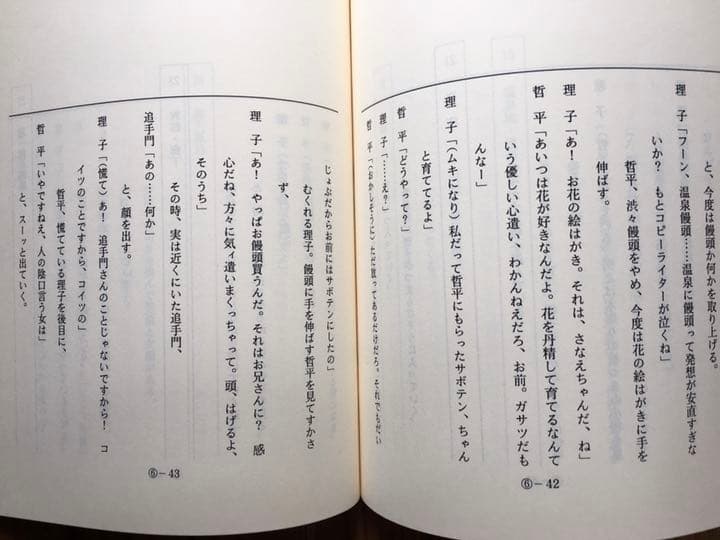 と、今度は饅頭か何かを取り上げる。
理　子「フーン、温泉饅頭……温泉に饅頭って発想が安直すぎな
いか？　もとコピーライターが泣くね」
哲平、渋々饅頭をやめ、今度は花の絵はがきに手を
伸ばす。
理　子「あ！　お花の絵はがき。それは、さなえちゃんだ、ね」
哲　平「あいつは花が好きなんだよ。花を丹精して育てるなんて
いう優しい心遣い、わかんねえだろ、お前。ガサツだも
んなー」
理　子「（ムキになり）私だって哲平にもらったサボテン、ちゃん
と育ててるよ」
哲　平「どうやって？」
理　子「……え？」
哲　平「（おかしそうに）ただ放ってあるだけだろ。それでもだい
⑥－42
じょぶだからお前にはサボテンにしたの」
むくれる理子。饅頭に手を伸ばす哲平を見てすかさ
ず、
理　子「あ！　やっぱお饅頭買うんだ。それはお兄さんに？　感
心だね、方々に気ィ遣いまくっちゃって。頭、はげるよ、
そのうち」
その時、実は近くにいた追手門、
追手門「あの……何か」
と、顔を出す。
理　子「（慌て）あ！　追手門さんのことじゃないですから！　コ
イツのことですから、コイツの」
哲平、慌てている理子を後目に、
哲　平「いやですねえ、人の陰口言う女は」
と、スーッと出ていく。
⑥－43